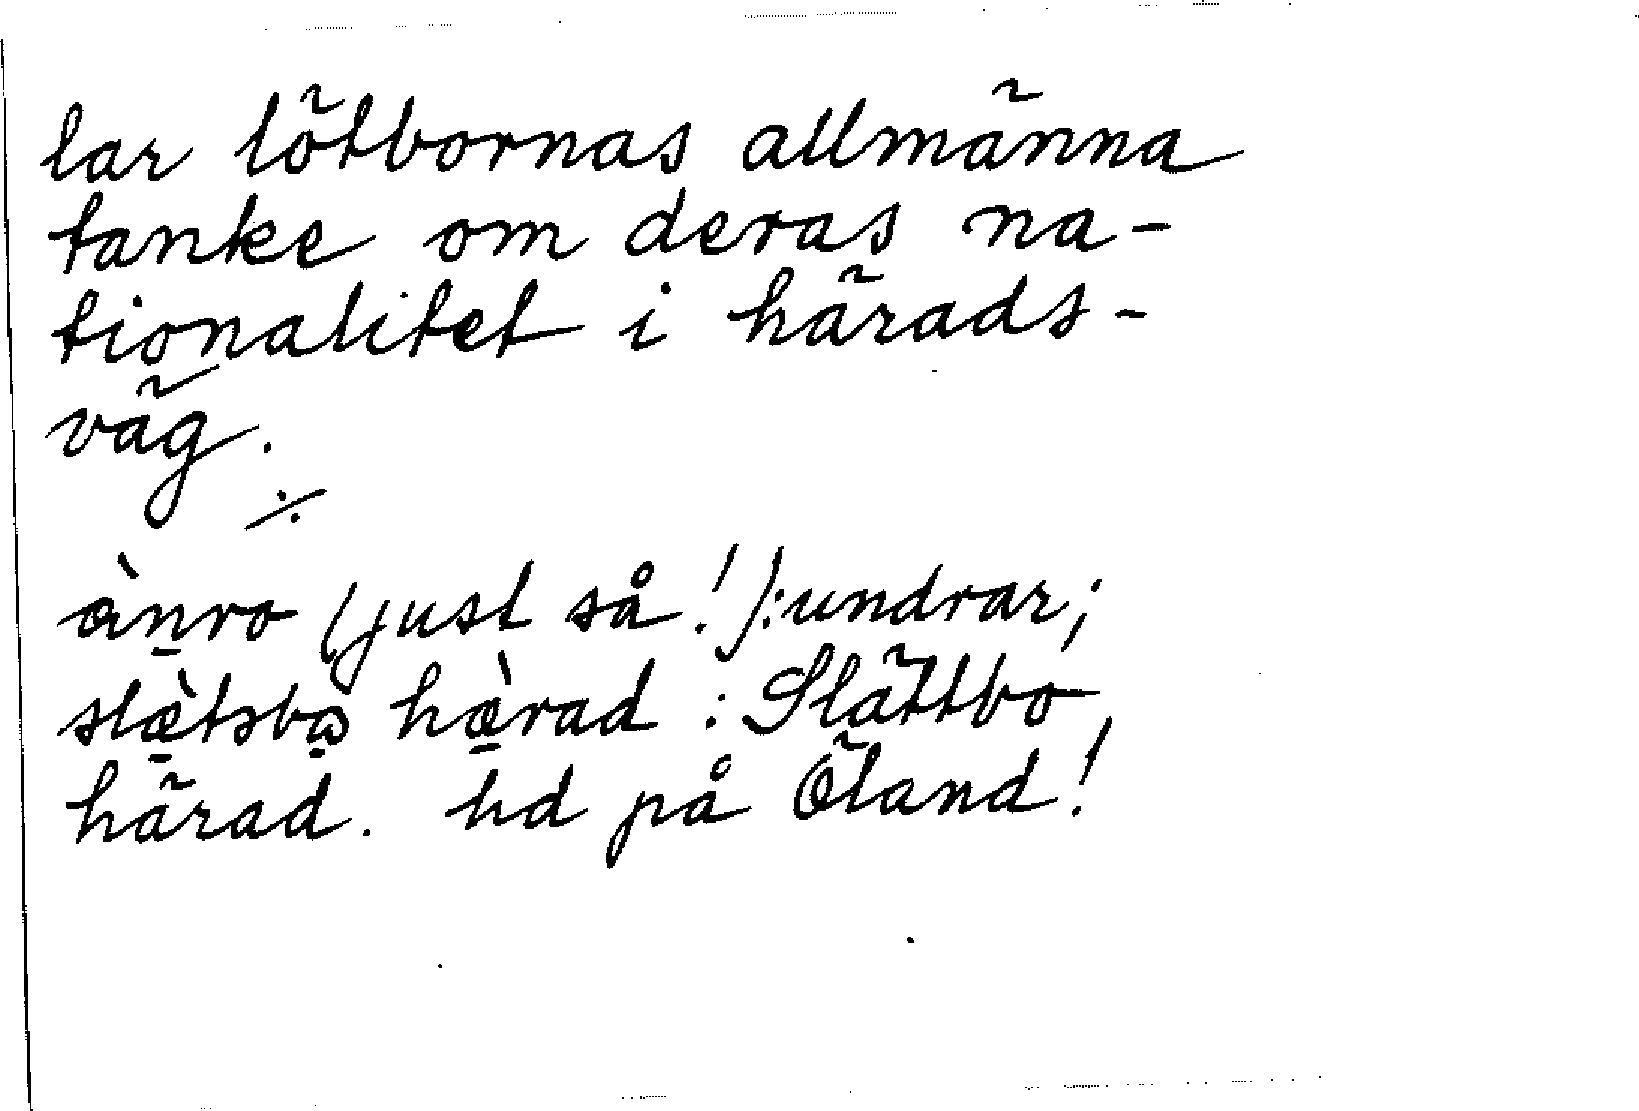 lar lötbornas allmänna
tanke om deras na-
tionalitet i härads-
väg.
⁒
àn̲ro (just så!): undrar;
slæ̲̀tsbo̲ hæ̲̀rad : Slättbo
härad. hd på Öland!